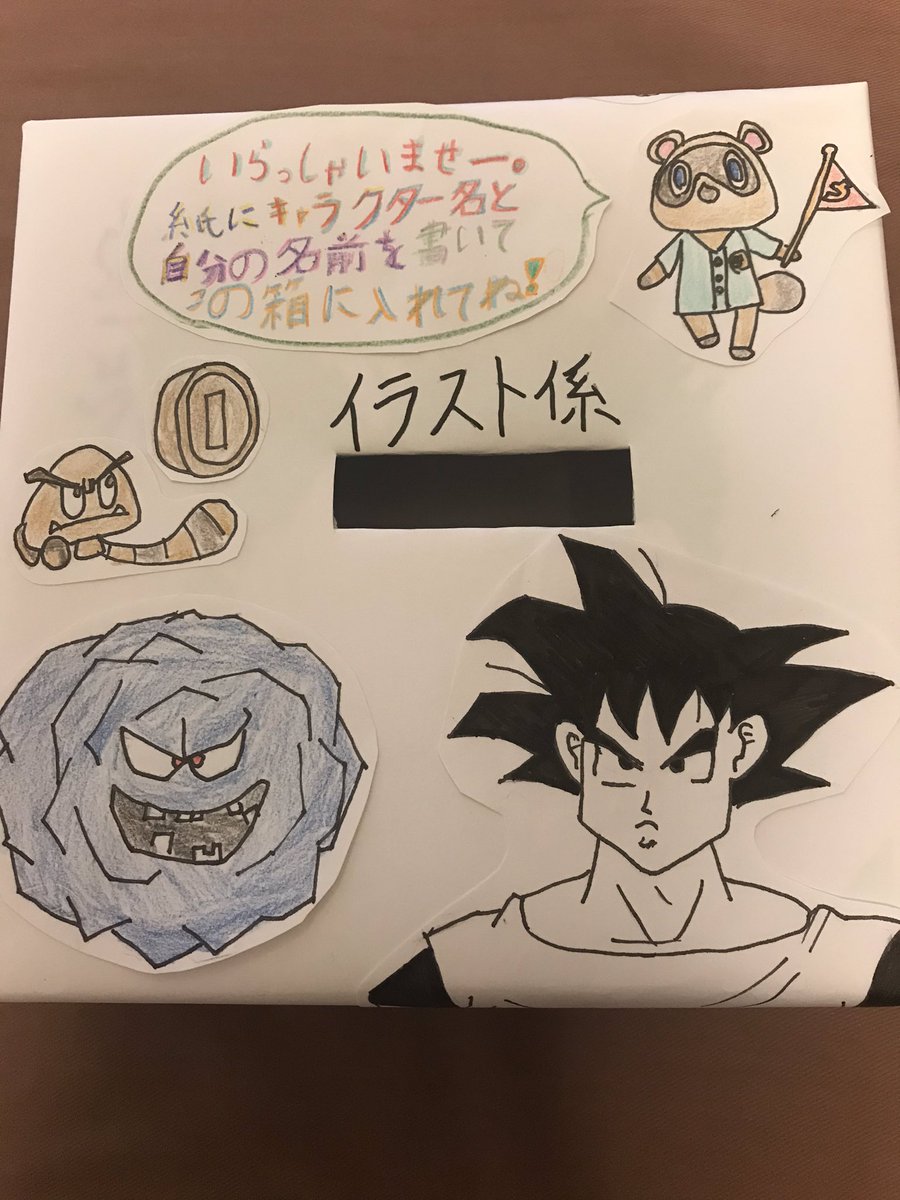 いらっしゃいませー。
紙にキャラクター名と
自分の名前を書いて
この箱に入れてね!
イラスト係
S